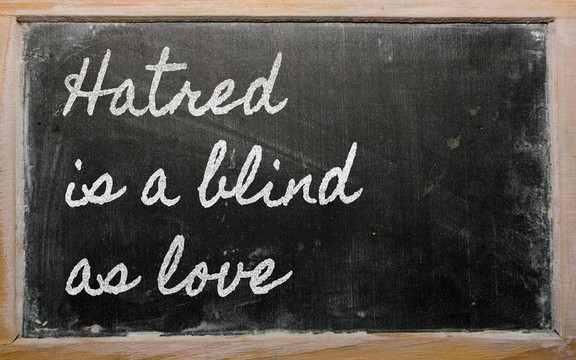 Hatred
is a blind
as love